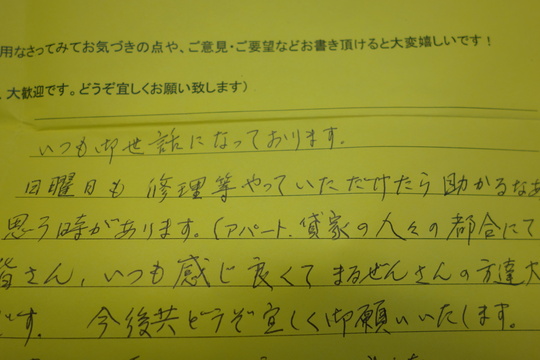 用なさってみてお気づきの点や、ご意見・ご要望などお書き頂けると大変嬉しいです！
大歓迎です。どうぞ宜しくお願い致します）
いつも御世話になっております。
日曜日も 修理等やっていただけたら 助かるなあ
思う時があります。（アパート、貸家の人々の都合にて
皆さん、いつも感じ良くて まるぜんさんの方達大
です。 今後共どうぞ宜しく御願いいたします。